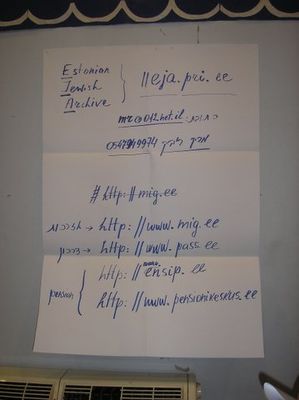 Estonian
Jewish
Archive
//eja.pri.ee
mr@012.net.il
מרק
#http://mig.ee
אזרחות → http://www.mig.ee
דרכון → http://www.pass.ee
pension
http://www.ensip.ee
http://www.pensionikeskus.ee